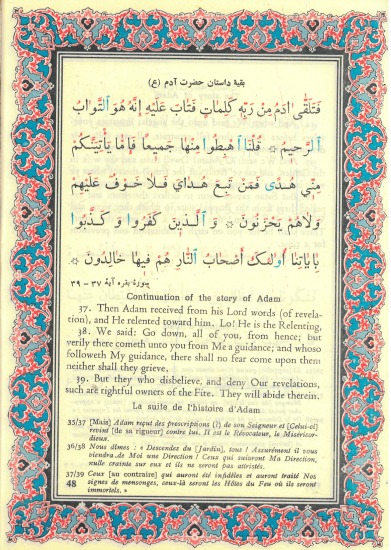 بقیهٔ داستان حضرت آدم (ع)
فَتَلَقّٰى ادَمُ مِنْ رَبِّهِ كَلِمٰاتٍ فَتٰابَ عَلَيْهِ اِنَّهُ هُوَ التَّوّٰابُ
الرَّحيمُ ۞ قُلْنَا اهْبِطُوا مِنْهٰا جَميعًا فَاِمّٰا يَأْتِيَنَّكُمْ
مِنّي هُدًى فَمَنْ تَبِعَ هُدٰايَ فَلٰا خَوْفٌ عَلَيْهِمْ
وَلٰاهُمْ يَحْزَنُونَ ۞ وَ الَّذينَ كَفَرُوا وَ كَذَّبُوا
بِاٰيٰاتِنٰا اُولٰئِكَ اَصْحٰابُ النّٰارِ هُمْ فيهٰا خٰالِدُونَ ۞
سورهٔ بقره آیهٔ ۳۷ – ۳۹
Continuation of the story of Adam
37. Then Adam received from his Lord words (of revela-
tion), and He relented toward him. Lo! He is the Relenting,
38. We said: Go down, all of you, from hence; but
verily there cometh unto you from Me a guidance; and whoso
followeth My guidance, there shall no fear come upon them
neither shall they grieve.
39. But they who disbelieve, and deny Our revelations,
such are rightful owners of the Fire. They will abide therein.
La suite de l'histoire d'Adam
35/37 [Mais] Adam reçut des prescriptions (?) de son Seigneur et [Celui-ci]
revint [de sa rigueur] contre lui. Il est le Révocateur, le Miséricor-
dieux.
36/38 Nous dîmes : « Descendez du [Jardin], tous ! Assurément il vous
viendra de Moi une Direction ! Ceux qui suivront Ma Direction,
nulle crainte sur eux et ils ne seront pas attristés.
37/39 Ceux [au contraire] qui auront été infidèles et auront traité Nos
signes de mensonges, ceux-là seront les Hôtes du Feu où ils seront
immortels. »
48